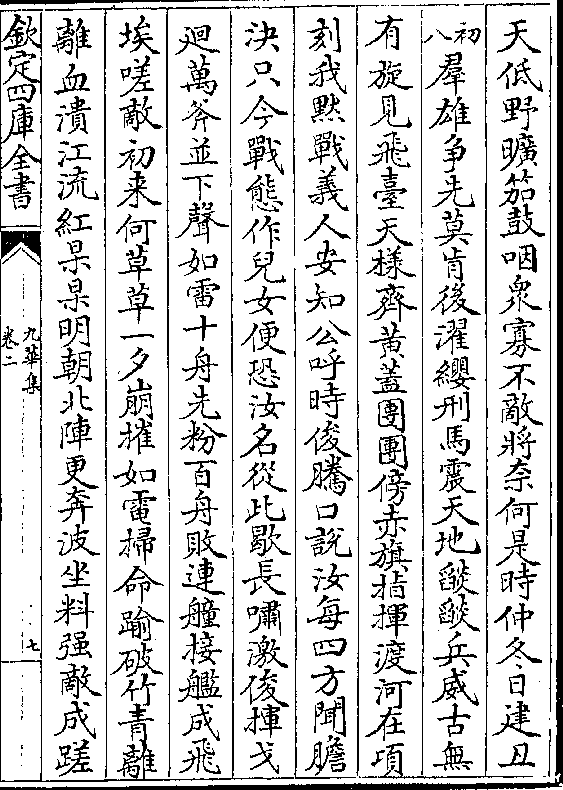 天低野曠笳鼓咽衆寡不敵將奈何是時仲冬日建丑
初八羣雄争先莫肯後濯纓刑馬震天地燄燄兵威古無
有旋見飛臺天樣齊黄蓋團團傍赤旗指揮渡河在項
刻我黙戰義人安知公呼時俊騰口說汝毎四方聞膽
決只今戰態作兒女便恐汝名從此歇長嘯激俊揮戈
廻萬斧並下聲如雷十舟先粉百舟敗連艟接艦成飛
埃嗟敵初来何草草一夕崩摧如電掃命踰破竹青離
離血漬江流紅杲杲明朝北陣更奔波坐料强敵成蹉
欽定四庫全書
九華集
卷二
七